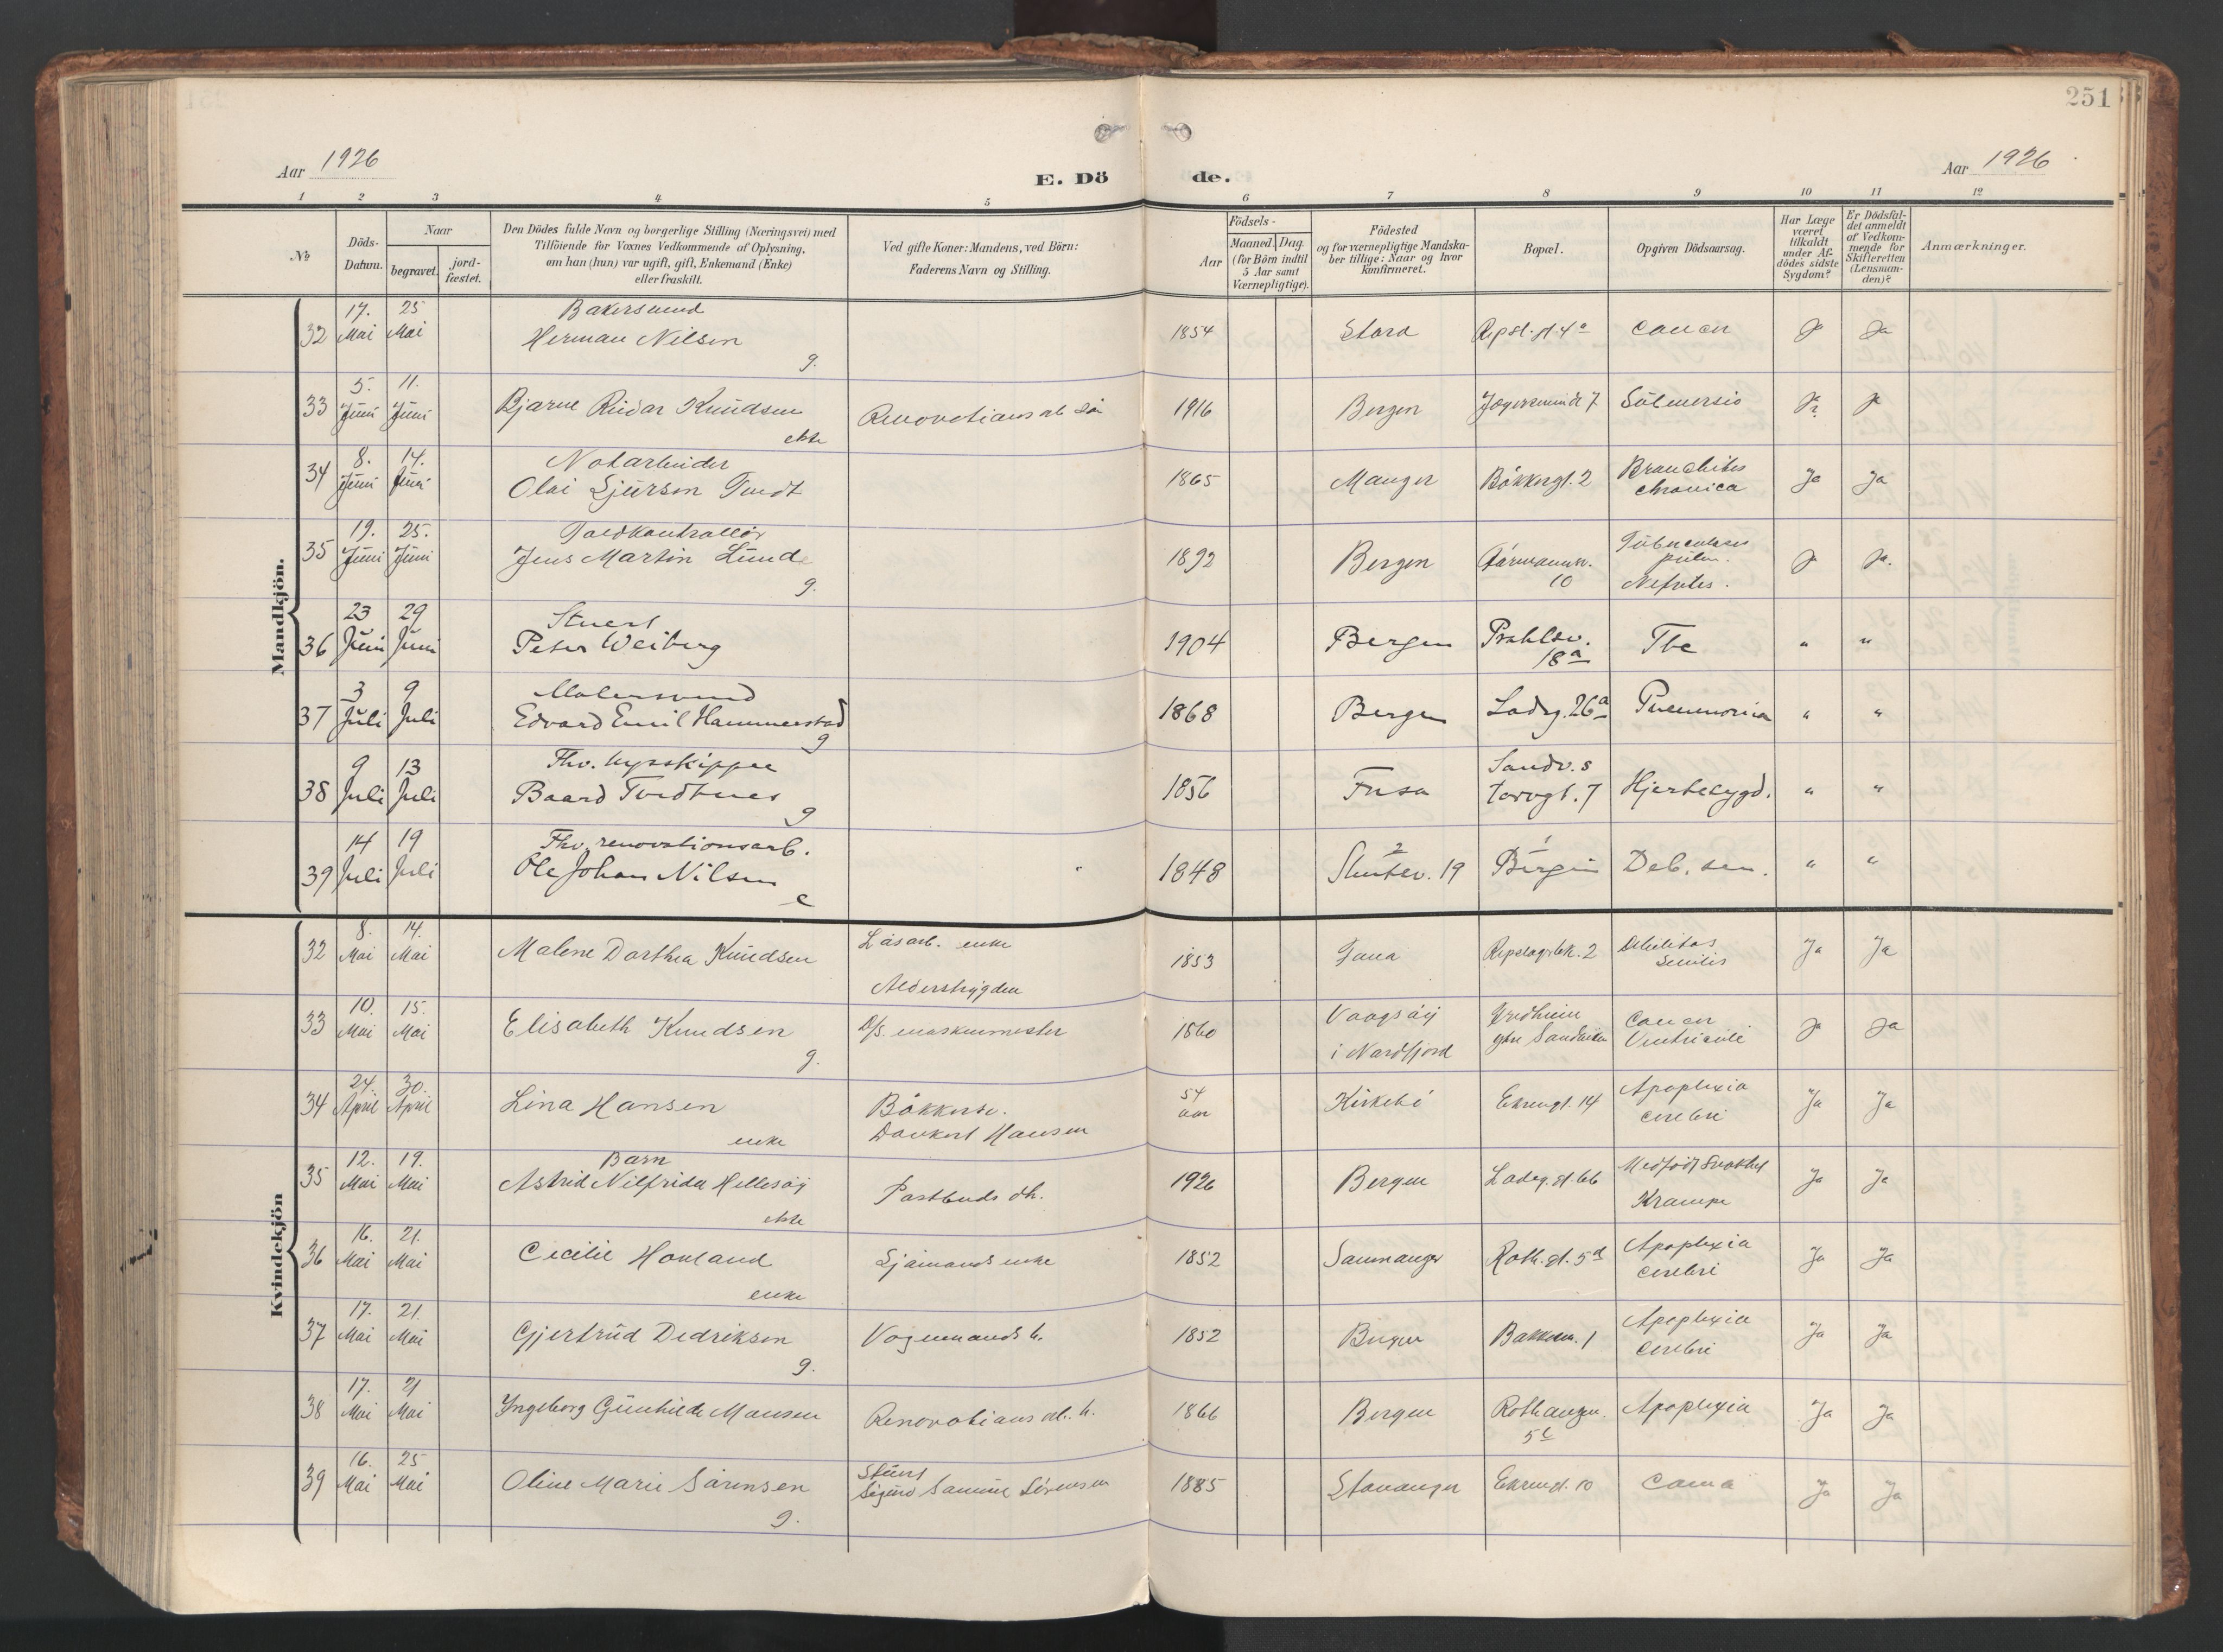 251
Aar 1926
E. Dö
de.
Aar 1926
1 2 3 4 5 6 7 8 9 10 11 12
№
Döds-
Datum.
Naar
begravet.
jord-
fæstet.
Den Dödes fulde Navn og borgerlige Stilling (Næringsvei) med
Tilföiende for Voxnes Vedkommende af Oplysning,
om han (hun) var ugift, gift, Enkemand (Enke)
eller fraskilt.
Ved gifte Koner: Mandens, ved Börn:
Faderens Navn og Stilling.
Födsels-
Aar
Maaned. Dag.
(for Börn indtil
5 Aar samt
Værnepligtige).
Födested
og for værnepligtige Mandska-
ber tillige: Naar og hvor
konfirmeret.
Bopæl.
Opgiven Dödsaarsag.
Har Læge
været
tilkaldt
under Af-
dödes sidste
Sygdom?
Er Dödsfal-
det anmeldt
af Vedkom-
mende for
Skifteretten
(Lensman-
den)?
Anmærkninger.
Mandkjön.
17. 25 Bakersvend
32 Mai Mai Herman Nilsen 1854 Stord Cancer Ja Ja
g.
5. 11.
33 Juni Juni Bjarne Reidar Knudsen Renovationsarb. sön 1916 Bergen 7 Ja
ekte
8. 14. Notarbeider Bronchites
34 Juni Juni Olai Sjurson Tvedt 1865 Manger Bökkergt. 2 chronica Ja Ja
19. 25. Toldkontrollör Tuberculosis
35 Juni Juni Jens Martin Lunde 1892 Bergen Formannsv. pulm. Ja Ja.
g. 10 Nefrites.
23 29 Stuert
36 Juni Juni Peter Weiberg 1904 Bergen Prahlsv. Tbc " "
18a
3 9 Malersvend
37 Juli Juli Edvard Emil Hammerstad 1868 Bergen Ladeg. 26a Pneumonia " "
g
9 13 Fhv. Sandv.s
38 Juli Juli Baard Tvedtnes 1856 Fusa torvgt. 7 Hjertesygd. " "
g
14 19 Fhv. renovationsarb. 2 1
39 Juli Juli Ole Johan Nilsen 1848 19 Bergen Deb. sen. " "
e
Kvindekjön
8. 14. enke
32 Mai Mai Malene Dorthea Knudsen 1853 Fana Repslagerbk. 2 Debilitas Ja Ja
senilis
10. 15. Vaagsöy
33 Mai Mai Elisabeth Knudsen D/S. maskinmester 1860 Cancer Ja Ja
g. i Nordfjord Sandviken Ventriculi
24. 30. 54 Apoplexia
34 April April Lina Hansen Bökkersv. aar Kirkebö Ekrengt. 14 cerebri Ja Ja
enke Dankert Hansen
12. 19. Barn
35 Mai Mai Astrid Nilfrida Hellesöy Postbuds dt. 1926 Bergen Ladeg. gt 66 Medfödt Svakhet Ja Ja
ekte Krampe
16. 21. Apoplexia
36 Mai Mai Cecilie Hovland Sjömands enke 1852 Samnanger Roth. gt. 5d cerebri Ja Ja
enke
17. 21. Apoplexia
37 Mai Mai Gjertrud Dedriksen Vognmands h. 1852 Bergen 1 cerebri Ja Ja
g.
17. 21
38 Mai Mai Ingeborg Gunhilde Monsen Renovationsarb. h. 1866 Bergen 5c Apoplexia Ja Ja
16. 25 Stuert
39 Mai Mai Oline Marie Sörensen Sigurd Samuel Sörensen 1885 Stavanger Ekrengt. 10 Coma Ja Ja
g.